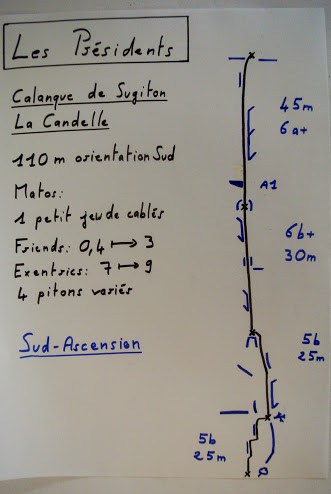 Les Présidents
Calanque de Sugiton
La Candelle
110 m orientation Sud
Matos:
1 petit jeu de cablés
Friends: 0,4 ↦ 3
Exentrics: 7 ↦ 9
4 pitons variés
Sud-Ascension
45m
6a+
A1
6b+
30m
5b
25m
5b
25m